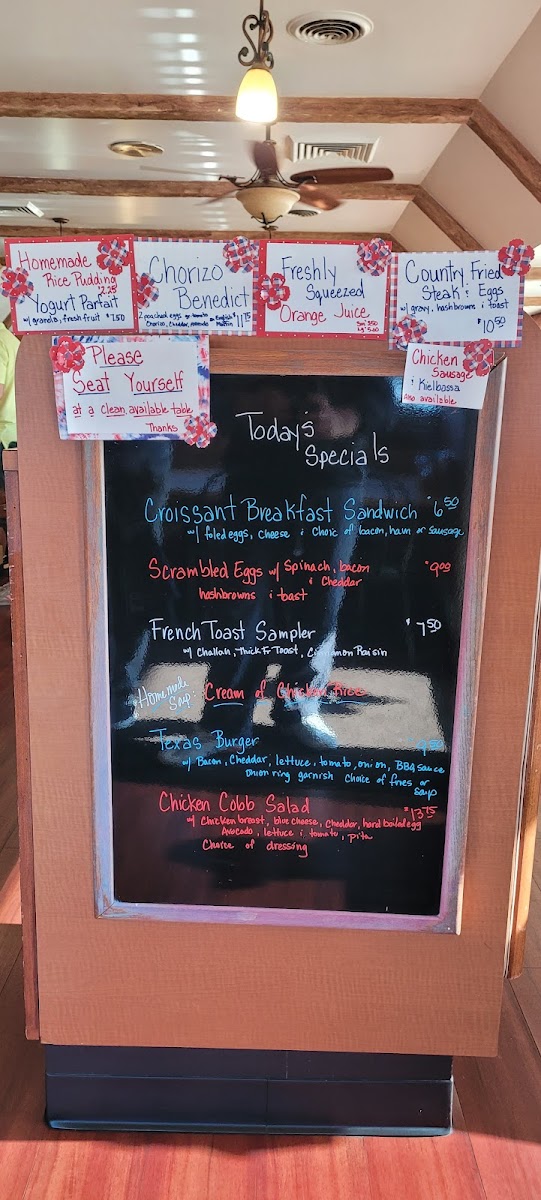 Homemade
Rice Pudding
$2.25
Yogurt Parfait
w/ granola, fresh fruit $7.50
Chorizo
Benedict
2 poached eggs
Chorizo, Cheddar,
English
Muffin
11.75
Freshly
Squeezed
Orange Juice
Country Fried
Steak & Eggs
w/ gravy, hashbrowns & toast
$10.50
Please
Seat Yourself
at a clean, available table
Thanks
Chicken
Sausage
& Kielbassa
also available
Today's
Specials
Croissant Breakfast Sandwich $6.50
w/ foled eggs, cheese & Choic of bacon, ham or Sausage
Scrambled Eggs w/ Spinach, bacon
& Cheddar
hashbrowns & toast
French Toast Sampler $7.50
w/ Challah, Thick Fr Toast, Cinnamon Raisin
Homemade
Soup: Cream of Chicken Rice
Texas Burger
w/ Bacon, Cheddar, lettuce, tomato, onion, BBQ sauce
Onion ring garnish Choice of fries or
Soup
Chicken Cobb Salad $13.75
w/ Chicken breast, blue cheese, Cheddar, hard boiled egg
Avocado, lettuce & tomato, pita
Choice of dressing